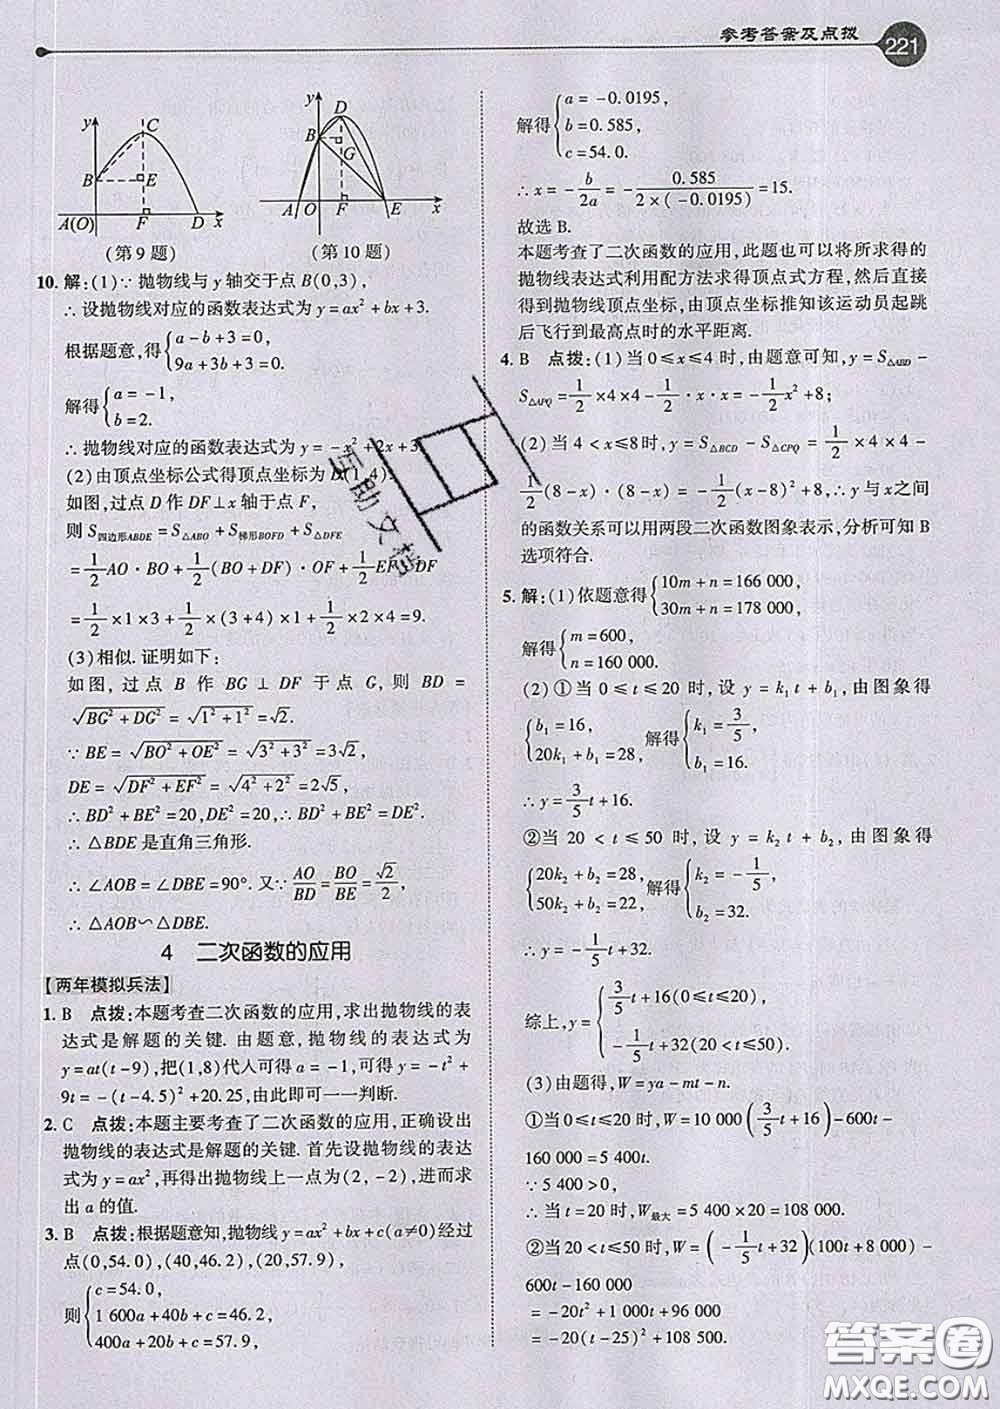 参考答案及点拨
221
y
C
B
E
A(O)
F
D
x
(第9题)
y
D
B
G
A
O
F
E
x
(第10题)
10. 解:(1)∵抛物线与y轴交于点B(0,3),
∴设抛物线对应的函数表达式为y=ax²+bx+3.
根据题意,得{a-b+3=0,
9a+3b+3=0.
解得{a=-1,
b=2.
∴抛物线对应的函数表达式为y=-x²+2x+3.
(2)由顶点坐标公式得顶点坐标为D(1,4).
如图,过点D作DF⊥x轴于点F,
则S四边形ABDE=S△ABO+S梯形BOFD+S△DFE
=1/2AO·BO+1/2(BO+DF)·OF+1/2EF·DF
=1/2×1×3+1/2×(3+4)×1+1/2×2×4=9.
(3)相似.证明如下:
如图,过点B作BG⊥DF于点G,则BD=
√(BG²+DG²)=√(1²+1²)=√2.
∵BE=√(BO²+OE²)=√(3²+3²)=3√2,
DE=√(DF²+EF²)=√(4²+2²)=2√5,
∴BD²+BE²=20,DE²=20,∴BD²+BE²=DE²,
∴△BDE是直角三角形.
∴∠AOB=∠DBE=90°.又∵AO/BD=BO/BE=√2/2,
∴△AOB∽△DBE.
4 二次函数的应用
【两年模拟兵法】
1. B 点拨:本题考查二次函数的应用,求出抛物线的表
达式是解题的关键.由题意,抛物线的表达式为
y=at(t-9),把(1,8)代人可得a=-1,可得y=-t²+
9t=-(t-4.5)²+20.25,由此即可一一判断.
2. C 点拨:本题主要考查了二次函数的应用,正确设出
抛物线的表达式是解题的关键.首先设抛物线的表达
式为y=ax²,再得出抛物线上一点为(2,-2),进而求
出a的值.
3. B 点拨:根据题意知,抛物线y=ax²+bx+c(a≠0)经过
点(0,54.0),(40,46.2),(20,57.9),
则{c=54.0,
1 600a+40b+c=46.2,
400a+20b+c=57.9,
解得{a=-0.0195,
b=0.585,
c=54.0.
∴x=-b/2a=-0.585/(2×(-0.0195))=15.
故选B.
本题考查了二次函数的应用,此题也可以将所求得的
抛物线表达式利用配方法求得顶点式方程,然后直接
得到抛物线顶点坐标,由顶点坐标推知该运动员起跳
后飞行到最高点时的水平距离.
4. B 点拨:(1)当0≤x≤4时,由题意可知,y=S△ABD-
S△APQ=1/2×4×4-1/2·x·x=-1/2x²+8;
(2)当4<x≤8时,y=S△BCD-S△CPQ=1/2×4×4-
1/2(8-x)·(8-x)=-1/2(x-8)²+8,∴y与x之间
的函数关系可以用两段二次函数图象表示,分析可知B
选项符合.
5. 解:(1)依题意得{10m+n=166 000,
30m+n=178 000,
解得{m=600,
n=160 000.
(2)①当0≤t≤20时,设y=k₁t+b₁,由图象得
{b₁=16,
20k₁+b₁=28,解得{k₁=3/5,
b₁=16.
∴y=3/5t+16.
②当20<t≤50时,设y=k₂t+b₂,由图象得
{20k₂+b₂=28,
50k₂+b₂=22,解得{k₂=-1/5,
b₂=32.
∴y=-1/5t+32.
综上,y={3/5t+16(0≤t≤20),
-1/5t+32(20<t≤50).
(3)由题得,W=ya-mt-n.
①当0≤t≤20时,W=10 000(3/5t+16)-600t-
160 000=5 400t.
∵5 400>0,
∴当t=20时,W最大=5 400×20=108 000.
②当20<t≤50时,W=(-1/5t+32)(100t+8 000)-
600t-160 000
=-20t²+1 000t+96 000
=-20(t-25)²+108 500.
互助文档
答案圈
MXQE.COM